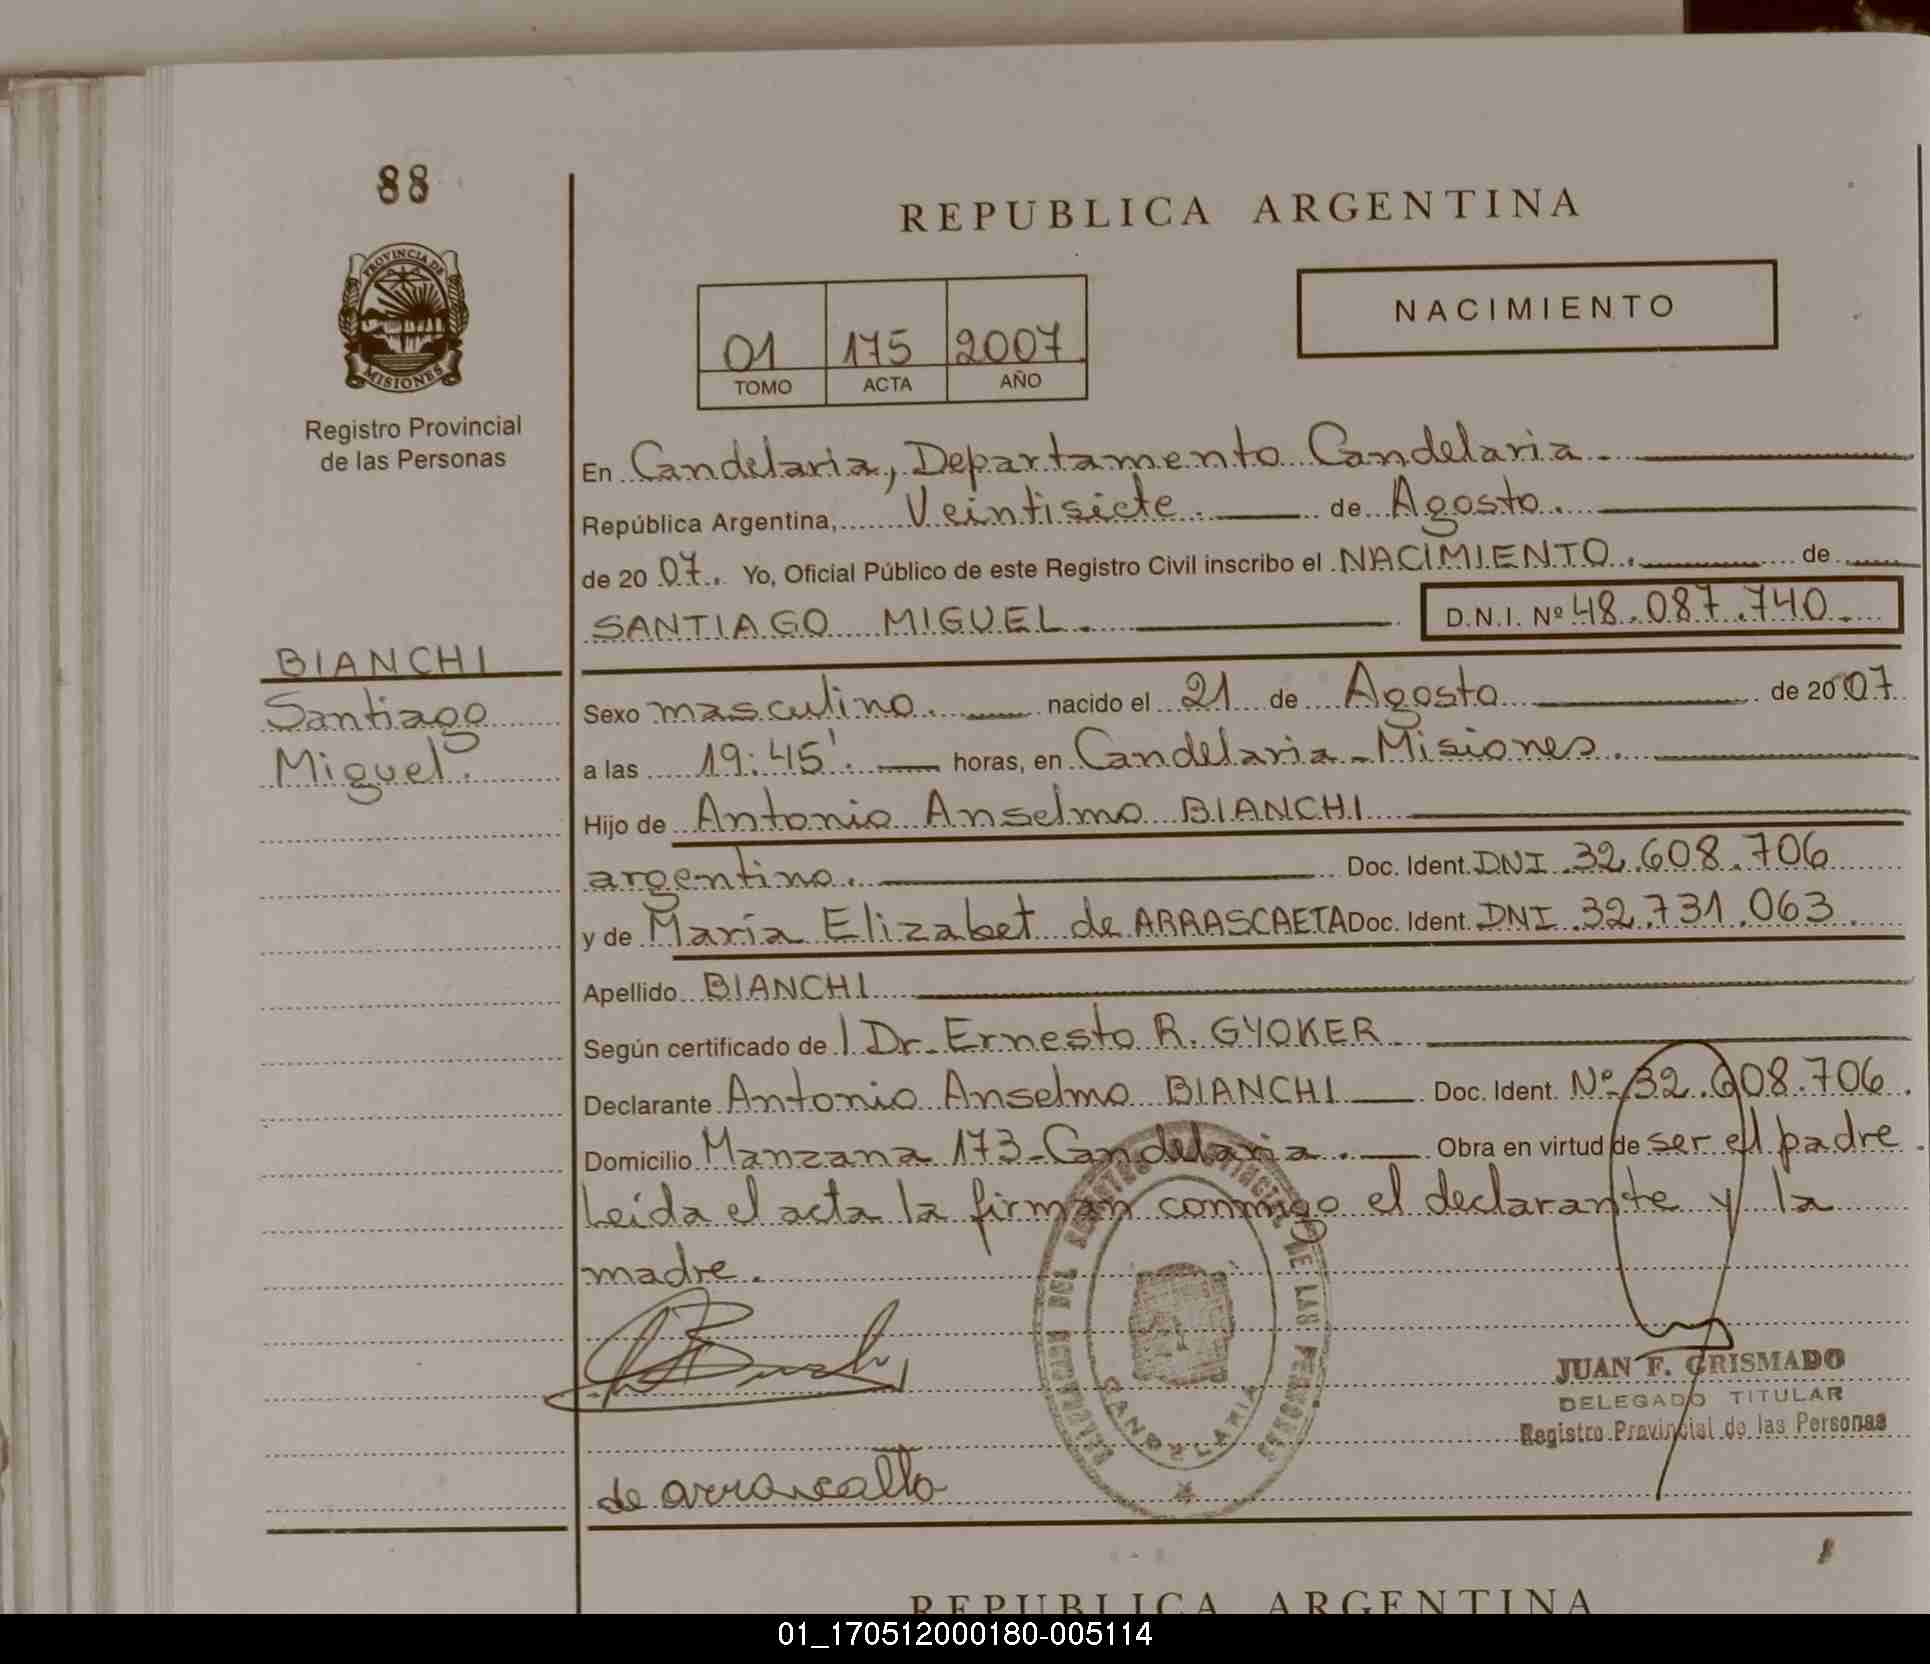 88
REPUBLICA ARGENTINA
PROVINCIA DE
MISIONES
Registro Provincial
de las Personas
01 175 2007
TOMO ACTA AÑO
NACIMIENTO
En Candelaria, Departamento Candelaria
República Argentina, Veintisiete. de Agosto.
de 20 07. Yo, Oficial Público de este Registro Civil inscribo el NACIMIENTO. de
SANTIAGO MIGUEL. D.N.I. Nº 48.087.740
BIANCHI
Santiago
Miguel.
Sexo masculino. nacido el 21 de Agosto de 20 07
a las 19:45'. horas, en Candelaria - Misiones.
Hijo de Antonio Anselmo BIANCHI
argentino. Doc. Ident. DNI 32.608.706
y de María Elizabet de ARRASCAETA Doc. Ident. DNI 32.731.063
Apellido BIANCHI
Según certificado de Dr. Ernesto R. GYOKER
Declarante Antonio Anselmo BIANCHI Doc. Ident. Nº 32.608.706.
Domicilio Manzana 173 - Candelaria. Obra en virtud de ser el padre
Leída el acta la firman conmigo el declarante y la
madre.
CANDELARIA
JUAN F. GRISMADO
DELEGADO TITULAR
Registro Provincial de las Personas
REPUBLICA ARGENTINA
01_170512000180-005114